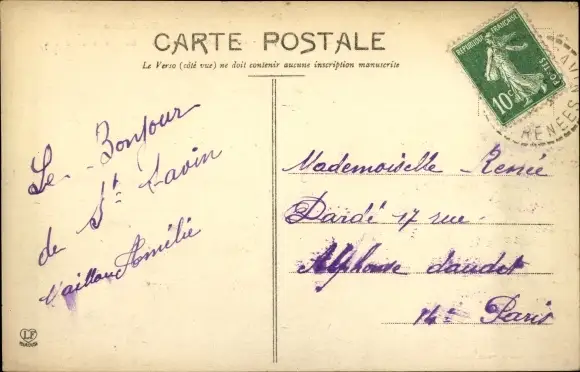 CARTE POSTALE
Le Verso (côté vue) ne doit contenir aucune inscription manuscrite
REPUBLIQUE FRANÇAISE
POSTES
10c
RENEES
Le Bonjour
de St Savin
Vaillau Amélie
Mademoiselle Renée
Dardé 17 rue
Alphonse daudet
14e Paris
LF